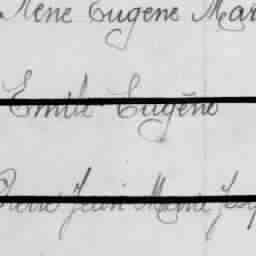 René Eugene Mar
Emile Eugène
Pierre Jean Marie Jos